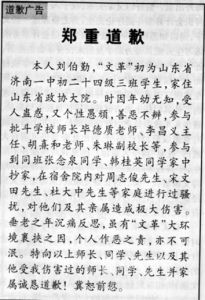 道歉广告
郑重道歉
本人刘伯勤,“文革”初为山东省
济南一中初二十四级三班学生,家住
山东省政协大院。时因年幼无知,受
人蛊惑,又个性恶顽,善恶不辨,参与
批斗学校师长毕德质老师、李昌义主
任、胡熹和老师、朱琳副校长等,参与
到同班张念泉同学、韩桂英同学家中
抄家,在宿舍院内对周志俊先生、宋文
田先生、杜大中先生等家庭进行过骚
扰,对他们及其亲属造成极大伤害。
垂老之年沉痛反思,虽有“文革”大环
境裹挟之因,个人作恶之责,亦不可
泯。特向以上师长、同学、先生以及其
他受我伤害过的师长、同学、先生并家
属诚恳道歉!冀恕前愆。